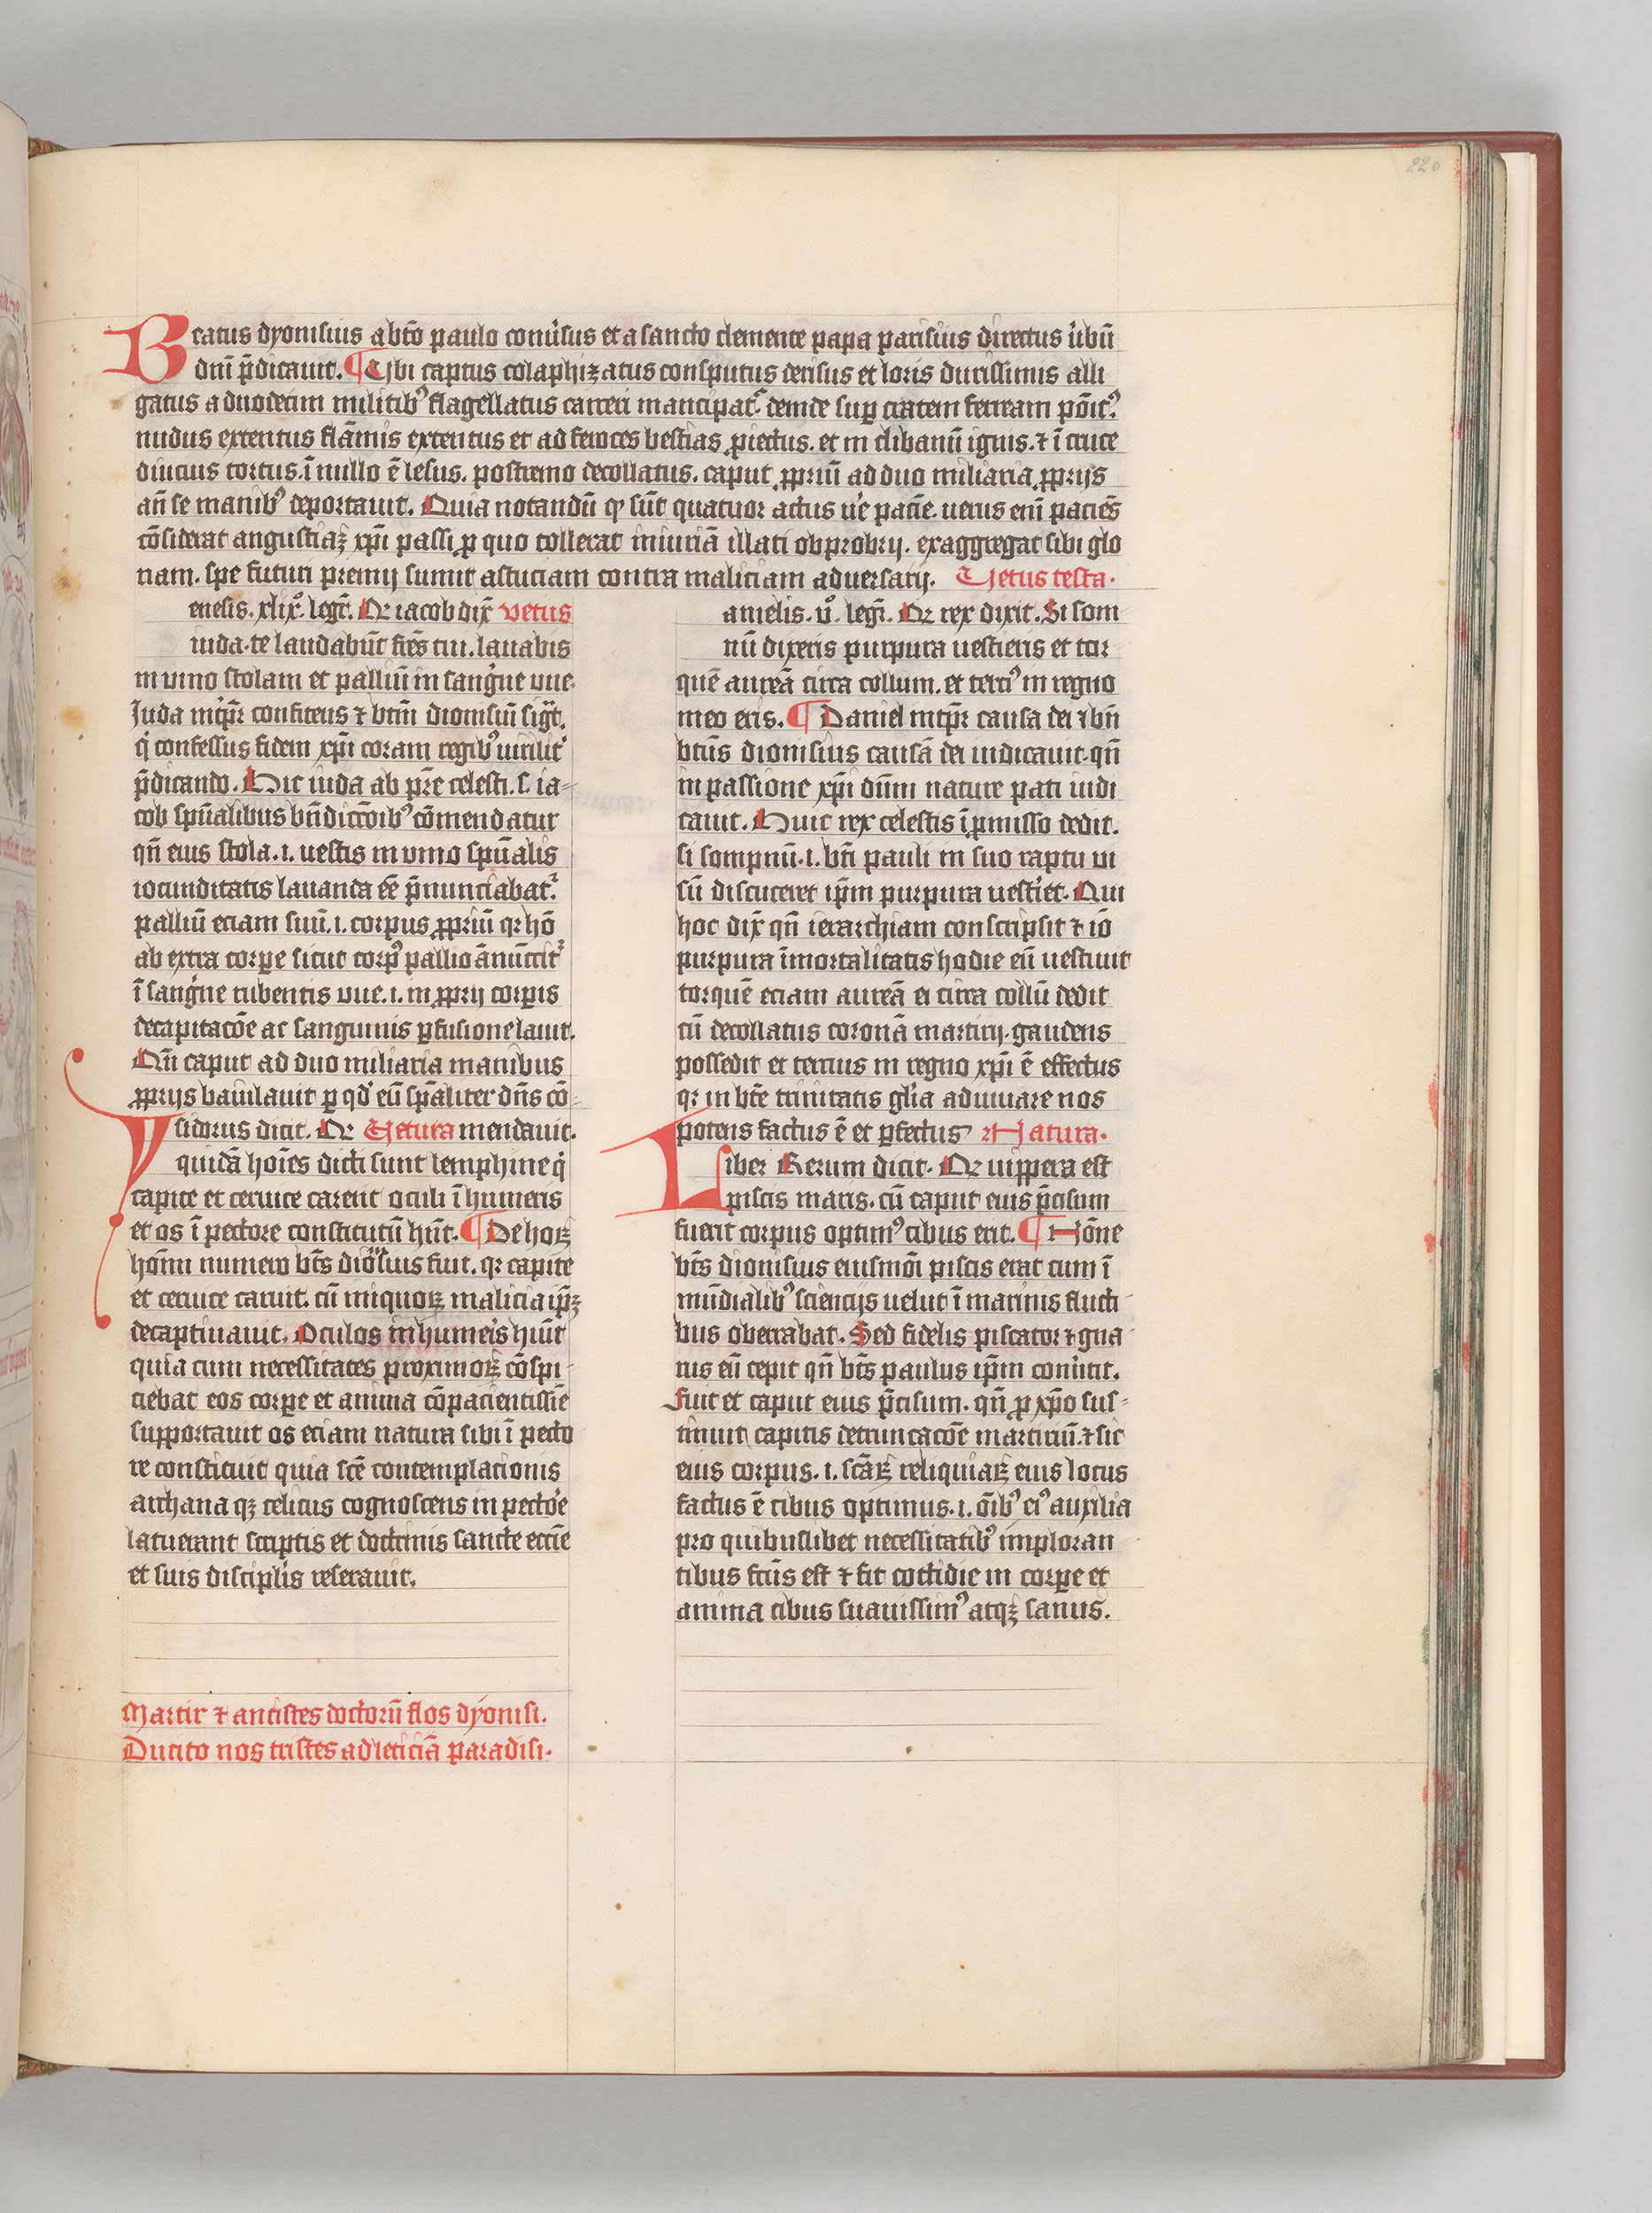 220
Beatus dyonisius a bt̄o paulo conu̓sus et a sancto clemente papa parisius directus u̓bū
dnī p̄dicauit. ¶ Vbi captus colaphizatus consputus derisus et loris durissimis alli
gatus a duodecim militib⁹ flagellatus carceri mancipat᷑. deinde suꝑ cratem ferream pōit⁹
nudus extentus flāmis extentus et ad feroces bestias ꝓiectus. et in clibanū ignis. ⁊ ī cruce
diucius tortus. ī nullo ē lesus. postremo decollatus. caput ꝓpriū ad duo miliaria ꝓprijs
an̄ se manib⁹ deportauit. Quia notandū ꝙ sūt quatuor actus ue̓ pacīe. uerus enī paciēs
cōsiderat angustiaꝫ xp̄i passi ꝓ quo tollerat iniuriā illati obprobrij. exaggregat sibi glo
riam. spe futuri premij sumit astuciam contra maliciam aduersarij. Vetus testa.
enesis. xlix̊. legit᷑. Qr iacob dix̄ vetus
iuda. te laudabūt fr̄es tui. lauabis
in vino stolam et palliū in sangͥne vue.
Iuda int̓p̄r confitens ⁊ btm̄ dionisiū sigͣt.
qͥ confessus fidem xp̄i coram regib⁹ uirilit̓
p̄dicando. Hic iuda ab pr̄e celesti. s. ia-
cob spūalibus bn̄dictōib⁹ cōmendatur
qn̄ eius stola. i. uestis in vino spūalis
iocunditatis lauanda eē p̄nunciabat᷑.
palliū eciam suū. i. corpus ꝓpriū qꝛ hō
ab extra corpe sicut corp⁹ pallio ānūctit᷑
ī sangͥne rubentis vue. i. in ꝓprij corpis
decapitacōe ac sanguinis ꝑfusione lauit.
Qn̄ caput ad duo miliaria manibus
ꝓprijs baiulauit ꝑ qd̓ eū spāliter dn̄s cō-
Ysidorus dicit. Qr Vetura mendauit.
quidā hoīes dicti sunt lemphine qͥ
capite et ceruice carent oculi ī humeris
et os ī pectore constitutū hn̄t. ¶ De hoꝝ
hoīnu numero bt̄s dioīsius fuit. qꝛ capite
et ceruice caruit. cū iniquoꝝ malicia ip̄ꝫ
decaptiuauit. Oculos in humeis hūit
quia cum necessitates proximoꝝ cōspi-
ciebat eos corpe et anima cōpacientissīe
supportauit os eciam natura sibi ī pecto
re constituit quia scē contemplacionis
archana qꝫ celicus cognoscens in pecto̓e
latuerant scriptis et doctrinis sancte ecc̄ie
et suis discipl̓is reserauit.
Martir ⁊ antistes doctorū flos dyonisi.
Ducito nos tristes ad leticiā paradisi.
anielis. v̊. legit᷑. Qr rex dixit. Si som-
nū dixeris purpura uestieris et tor-
quē aureā circa collum. et terci⁹ in regno
meo eris. ¶ Daniel int̓p̄r causa dei ⁊ bn̄
btūs dionisius causā dei iudicauit. qn̄
in passione xp̄i dnm̄ nature pati iudi
cauit. Huic rex celestis ī ꝓmisso dedit.
si sompnū. i. bt̄i pauli in suo raptu ui
sū discuteret ip̄m purpura uesti̓et. Qui
hoc dix̄ qn̄ ierarchiam conscripsit ⁊ iō
purpura īmortalitatis hodie eū uestiuit
torquē eciam aureā ei circa collū dedit
cū decollatus coronā martirij. gaudens
possedit et tercius in regno xp̄i ē effectus
qꝛ in bt̄e trinitatis gl̓ia adiuuare nos
potens factus ē et ꝑfectus Natura.
Liber Rerum dicit. Qr uippera est
piscis maris. cū caput eius p̄cisum
fuerit corpus optim⁹ cibus erit. ¶ Hōne
bt̄s dionisius eiusmōi piscis erat cum ī
mūdialib⁹ sciencijs uelut ī marinis flucti-
bus oberrabat. Sed fidelis piscator ⁊ gna-
uis eū cepit qn̄ bt̄s paulus ip̄m conu̓tit.
Fuit et caput eius p̄cisum. qn̄ ꝓ xp̄o sus-
tinuit capitis detruncacōe martiriū. ⁊ sic
eius corpus. i. scāꝝ reliquiaꝝ eius locus
factus ē cibus optimus. i. oīb⁹ ei⁹ auxilia
pro quibuslibet necessitatib⁹ imploran-
tibus fcūs est ⁊ fit cottidie in corpe et
anima cibus suauissim⁹ atqꝫ sanus.